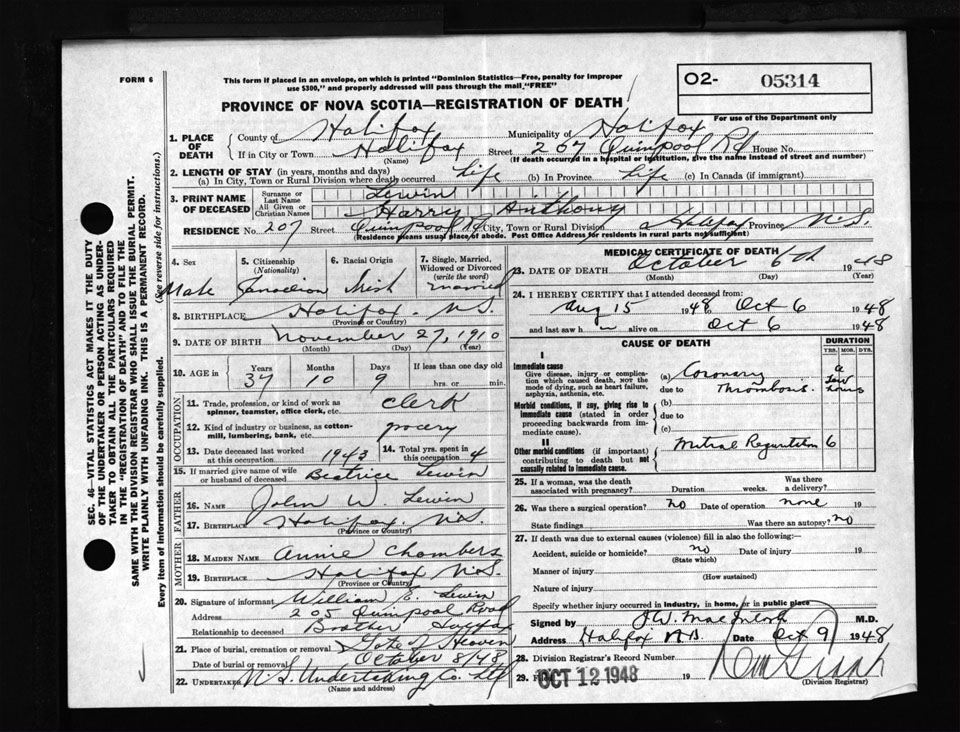 FORM 6
This form if placed in an envelope, on which is printed "Dominion Statistics—Free, penalty for improper
use $300," and properly addressed will pass through the mail "FREE"
O2- 05314
For use of the Department only
PROVINCE OF NOVA SCOTIA—REGISTRATION OF DEATH
1. PLACE OF DEATH
County of Halifax Municipality of Halifax
If in City or Town Halifax Street 207 Quinpool Rd House No.
(Name) (If death occurred in a hospital or institution, give the name instead of street and number)
2. LENGTH OF STAY (in years, months and days)
(a) In City, Town or Rural Division where death occurred life (b) In Province life (c) In Canada (if immigrant)
3. PRINT NAME OF DECEASED
Surname or Last Name Lewin
All Given or Christian Names Harry Anthony
RESIDENCE No. 207 Street Quinpool Rd City, Town or Rural Division Halifax Province N.S.
(Residence means usual place of abode. Post Office Address for residents in rural parts not sufficient)
4. Sex Male
5. Citizenship (Nationality) Canadian
6. Racial Origin Irish
7. Single, Married, Widowed or Divorced (write the word) married
8. BIRTHPLACE Halifax N.S.
(Province or Country)
9. DATE OF BIRTH November 27, 1910
(Month) (Day) (Year)
10. AGE in Years 37 Months 10 Days 9 If less than one day old
hrs. or min.
OCCUPATION
11. Trade, profession, or kind of work as spinner, teamster, office clerk, etc. clerk
12. Kind of industry or business, as cotton-mill, lumbering, bank, etc. grocery
13. Date deceased last worked at this occupation 1943
14. Total yrs. spent in this occupation 4
15. If married give name of wife or husband of deceased Beatrice Lewin
FATHER
16. NAME John W Lewin
17. BIRTHPLACE Halifax. N.S.
(Province or Country)
MOTHER
18. MAIDEN NAME Annie Chambers
19. BIRTHPLACE Halifax N.S.
(Province or Country)
20. Signature of informant William E. Lewin
Address 205 Quinpool Road
Relationship to deceased Brother Halifax
21. Place of burial, cremation or removal Gate of Heaven
Date of burial or removal October 8/48
22. UNDERTAKER N.S. Undertaking Co. Ltd
(Name and address)
MEDICAL CERTIFICATE OF DEATH
23. DATE OF DEATH October 6th 1948
(Month) (Day) (Year)
24. I HEREBY CERTIFY that I attended deceased from:
Aug 15 1948 Oct 6 1948
and last saw h alive on Oct 6 1948
CAUSE OF DEATH
DURATION
YRS. MOS. DYS.
I
Immediate cause
Give disease, injury or complication which caused death, NOT the mode of dying, such as heart failure, asphyxia, asthenia, etc.
(a) Coronary a few
due to Thrombosis
Morbid conditions, if any, giving rise to immediate cause (stated in order proceeding backwards from immediate cause).
(b)
due to
(c)
II
Other morbid conditions (if important) contributing to death but not causally related to immediate cause.
Mitral Regurgitation 6
25. If a woman, was the death associated with pregnancy? Duration weeks. Was there a delivery?
26. Was there a surgical operation? No Date of operation none 19
State findings Was there an autopsy? No
27. If death was due to external causes (violence) fill in also the following:—
Accident, suicide or homicide? no Date of injury 19
(State which)
Manner of injury
(How sustained)
Nature of injury
Specify whether injury occurred in industry, in home, or in public place
Signed by J.W. MacIntosh M.D.
Address Halifax N.S. Date Oct 9 1948
28. Division Registrar's Record Number
29. OCT 12 1948 19
(Division Registrar)
SEC. 46—VITAL STATISTICS ACT MAKES IT THE DUTY
OF THE UNDERTAKER OR PERSON ACTING AS UNDER-
TAKER TO OBTAIN ALL THE PARTICULARS REQUIRED
IN THE "REGISTRATION OF DEATH" AND TO FILE THE
SAME WITH THE DIVISION REGISTRAR WHO SHALL ISSUE THE BURIAL PERMIT.
WRITE PLAINLY WITH UNFADING INK. THIS IS A PERMANENT RECORD.
Every item of information should be carefully supplied. (See reverse side for instructions.)